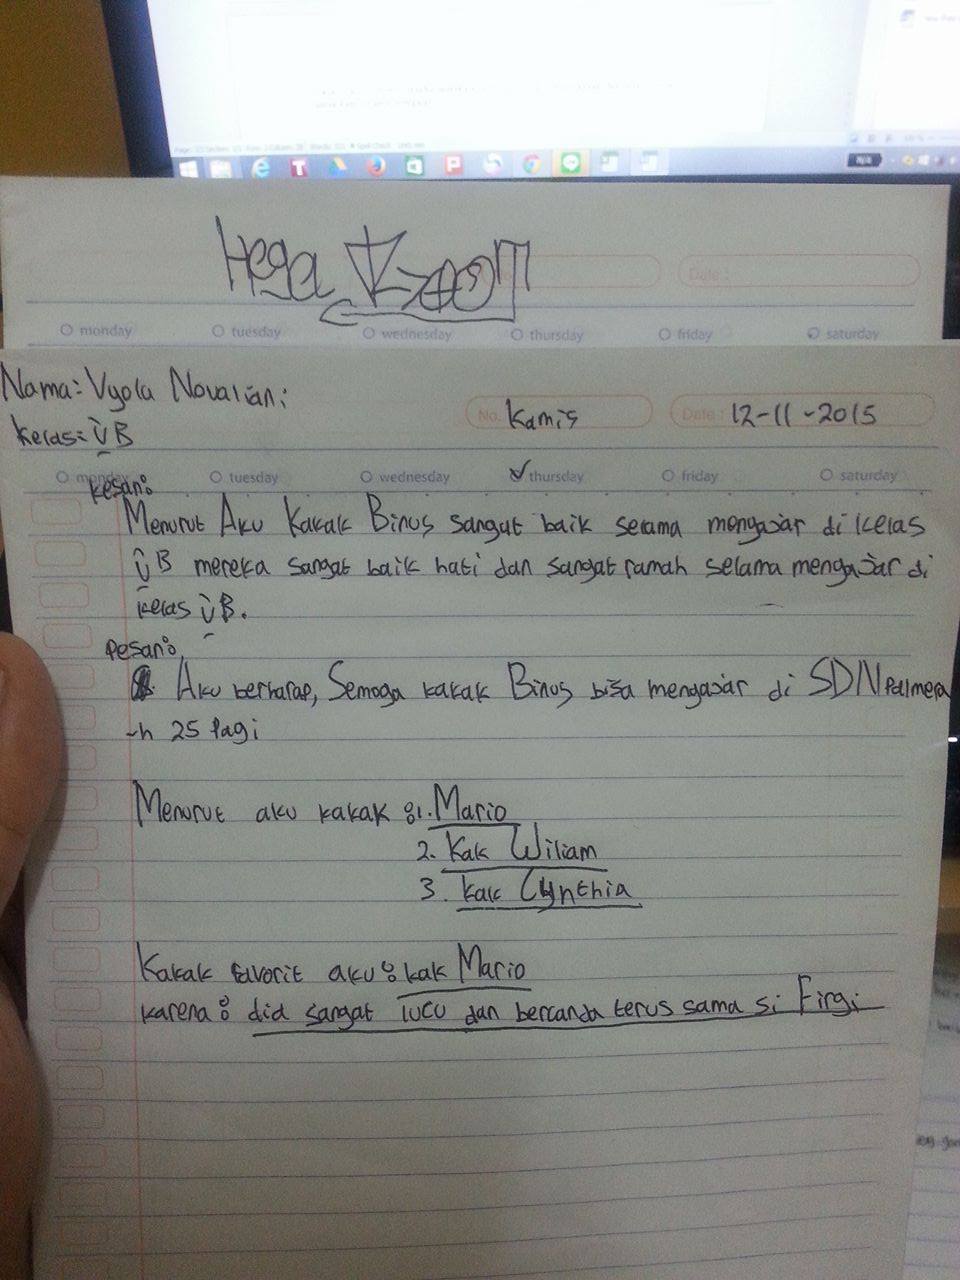 Hega
No.
Date :
monday tuesday wednesday thursday friday saturday
Nama: Vyola Novaliani
No. Kamis
Date : 12-11-2015
Kelas: VB
monday tuesday wednesday thursday friday saturday
Kesan:
Menurut Aku Kakak Binus sangat baik selama mengajar di kelas
VB mereka sangat baik hati dan sangat ramah selama mengajar di
kelas VB.
Pesan:
Aku berharap, Semoga kakak Binus bisa mengajar di SDN Palmera
-h 25 lagi
Menurut aku kakak : 1. Mario
2. Kak Wiliam
3. Kak Cynthia
Kakak favorit aku : kak Mario
karena : dia sangat lucu dan bercanda terus sama si Firgi